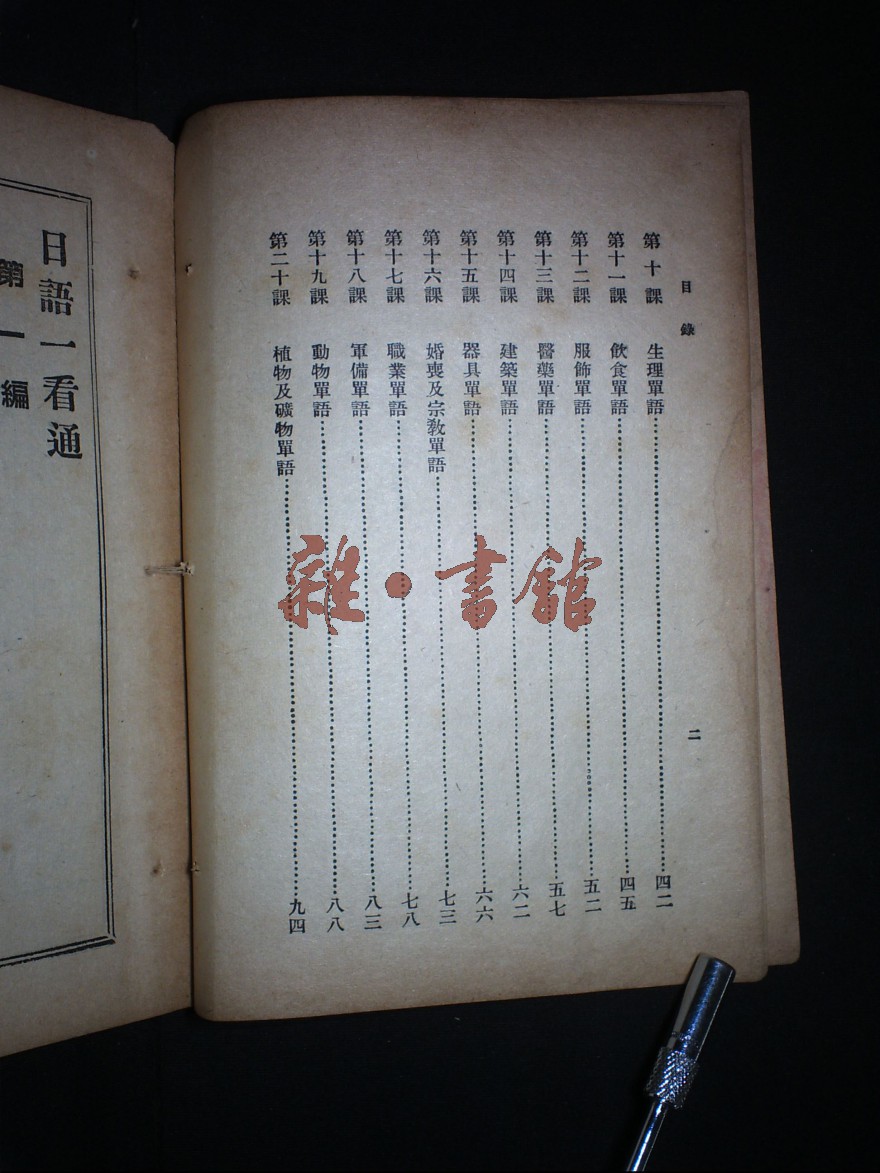 目錄
二
第十課 生理單語 四二
第十一課 飲食單語 四五
第十二課 服飾單語 五二
第十三課 醫藥單語 五七
第十四課 建築單語 六二
第十五課 器具單語 六六
第十六課 婚喪及宗教單語 七三
第十七課 職業單語 七八
第十八課 軍備單語 八三
第十九課 動物單語 八八
第二十課 植物及礦物單語 九四
日語一看通
第一編
雜·書館